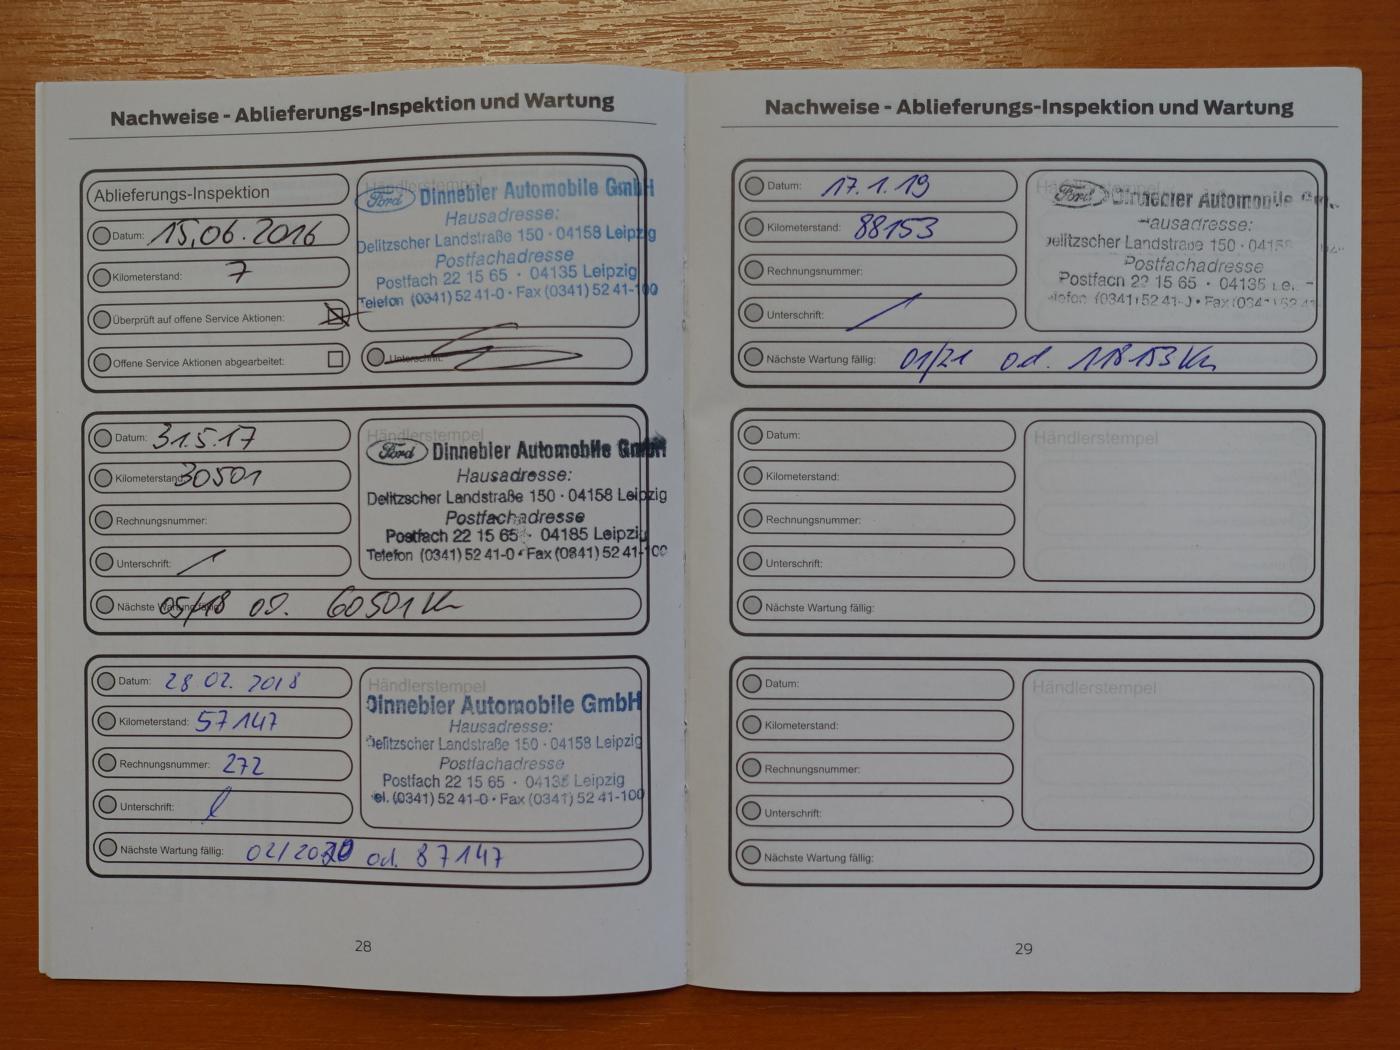 Nachweise - Ablieferungs-Inspektion und Wartung
Ablieferungs-Inspektion
Datum: 15.06.2016
Kilometerstand: 7
Überprüft auf offene Service Aktionen:
Offene Service Aktionen abgearbeitet:
Händlerstempel
Ford Dinnebier Automobile GmbH
Hausadresse:
Delitzscher Landstraße 150 · 04158 Leipzig
Postfachadresse
Postfach 22 15 65 · 04135 Leipzig
Telefon (0341) 52 41-0 • Fax (0341) 52 41-100
Unterschrift:
Datum: 31.5.17
Kilometerstand: 30501
Rechnungsnummer:
Unterschrift:
Händlerstempel
Ford Dinnebier Automobile GmbH
Hausadresse:
Delitzscher Landstraße 150 · 04158 Leipzig
Postfachadresse
Postfach 22 15 65 · 04135 Leipzig
Telefon (0341) 52 41-0 • Fax (0341) 52 41-100
Nächste Wartung fällig: 05/18 od. 60501 Km
Datum: 28 02. 2018
Kilometerstand: 57147
Rechnungsnummer: 272
Unterschrift:
Händlerstempel
Dinnebier Automobile GmbH
Hausadresse:
Delitzscher Landstraße 150 · 04158 Leipzig
Postfachadresse
Postfach 22 15 65 · 04135 Leipzig
Tel. (0341) 52 41-0 • Fax (0341) 52 41-100
Nächste Wartung fällig: 02/2020 od. 87147
28
Nachweise - Ablieferungs-Inspektion und Wartung
Datum: 17.1.19
Kilometerstand: 88153
Rechnungsnummer:
Unterschrift:
Händlerstempel
Ford Dinnebier Automobile
Hausadresse:
Delitzscher Landstraße 150 · 04158
Postfachadresse
Postfach 22 15 65 · 04135
Telefon (0341) 52 41-0 • Fax (0341) 52 41
Nächste Wartung fällig: 01/21 od. 118153 Km
Datum:
Kilometerstand:
Rechnungsnummer:
Unterschrift:
Händlerstempel
Nächste Wartung fällig:
Datum:
Kilometerstand:
Rechnungsnummer:
Unterschrift:
Händlerstempel
Nächste Wartung fällig:
29